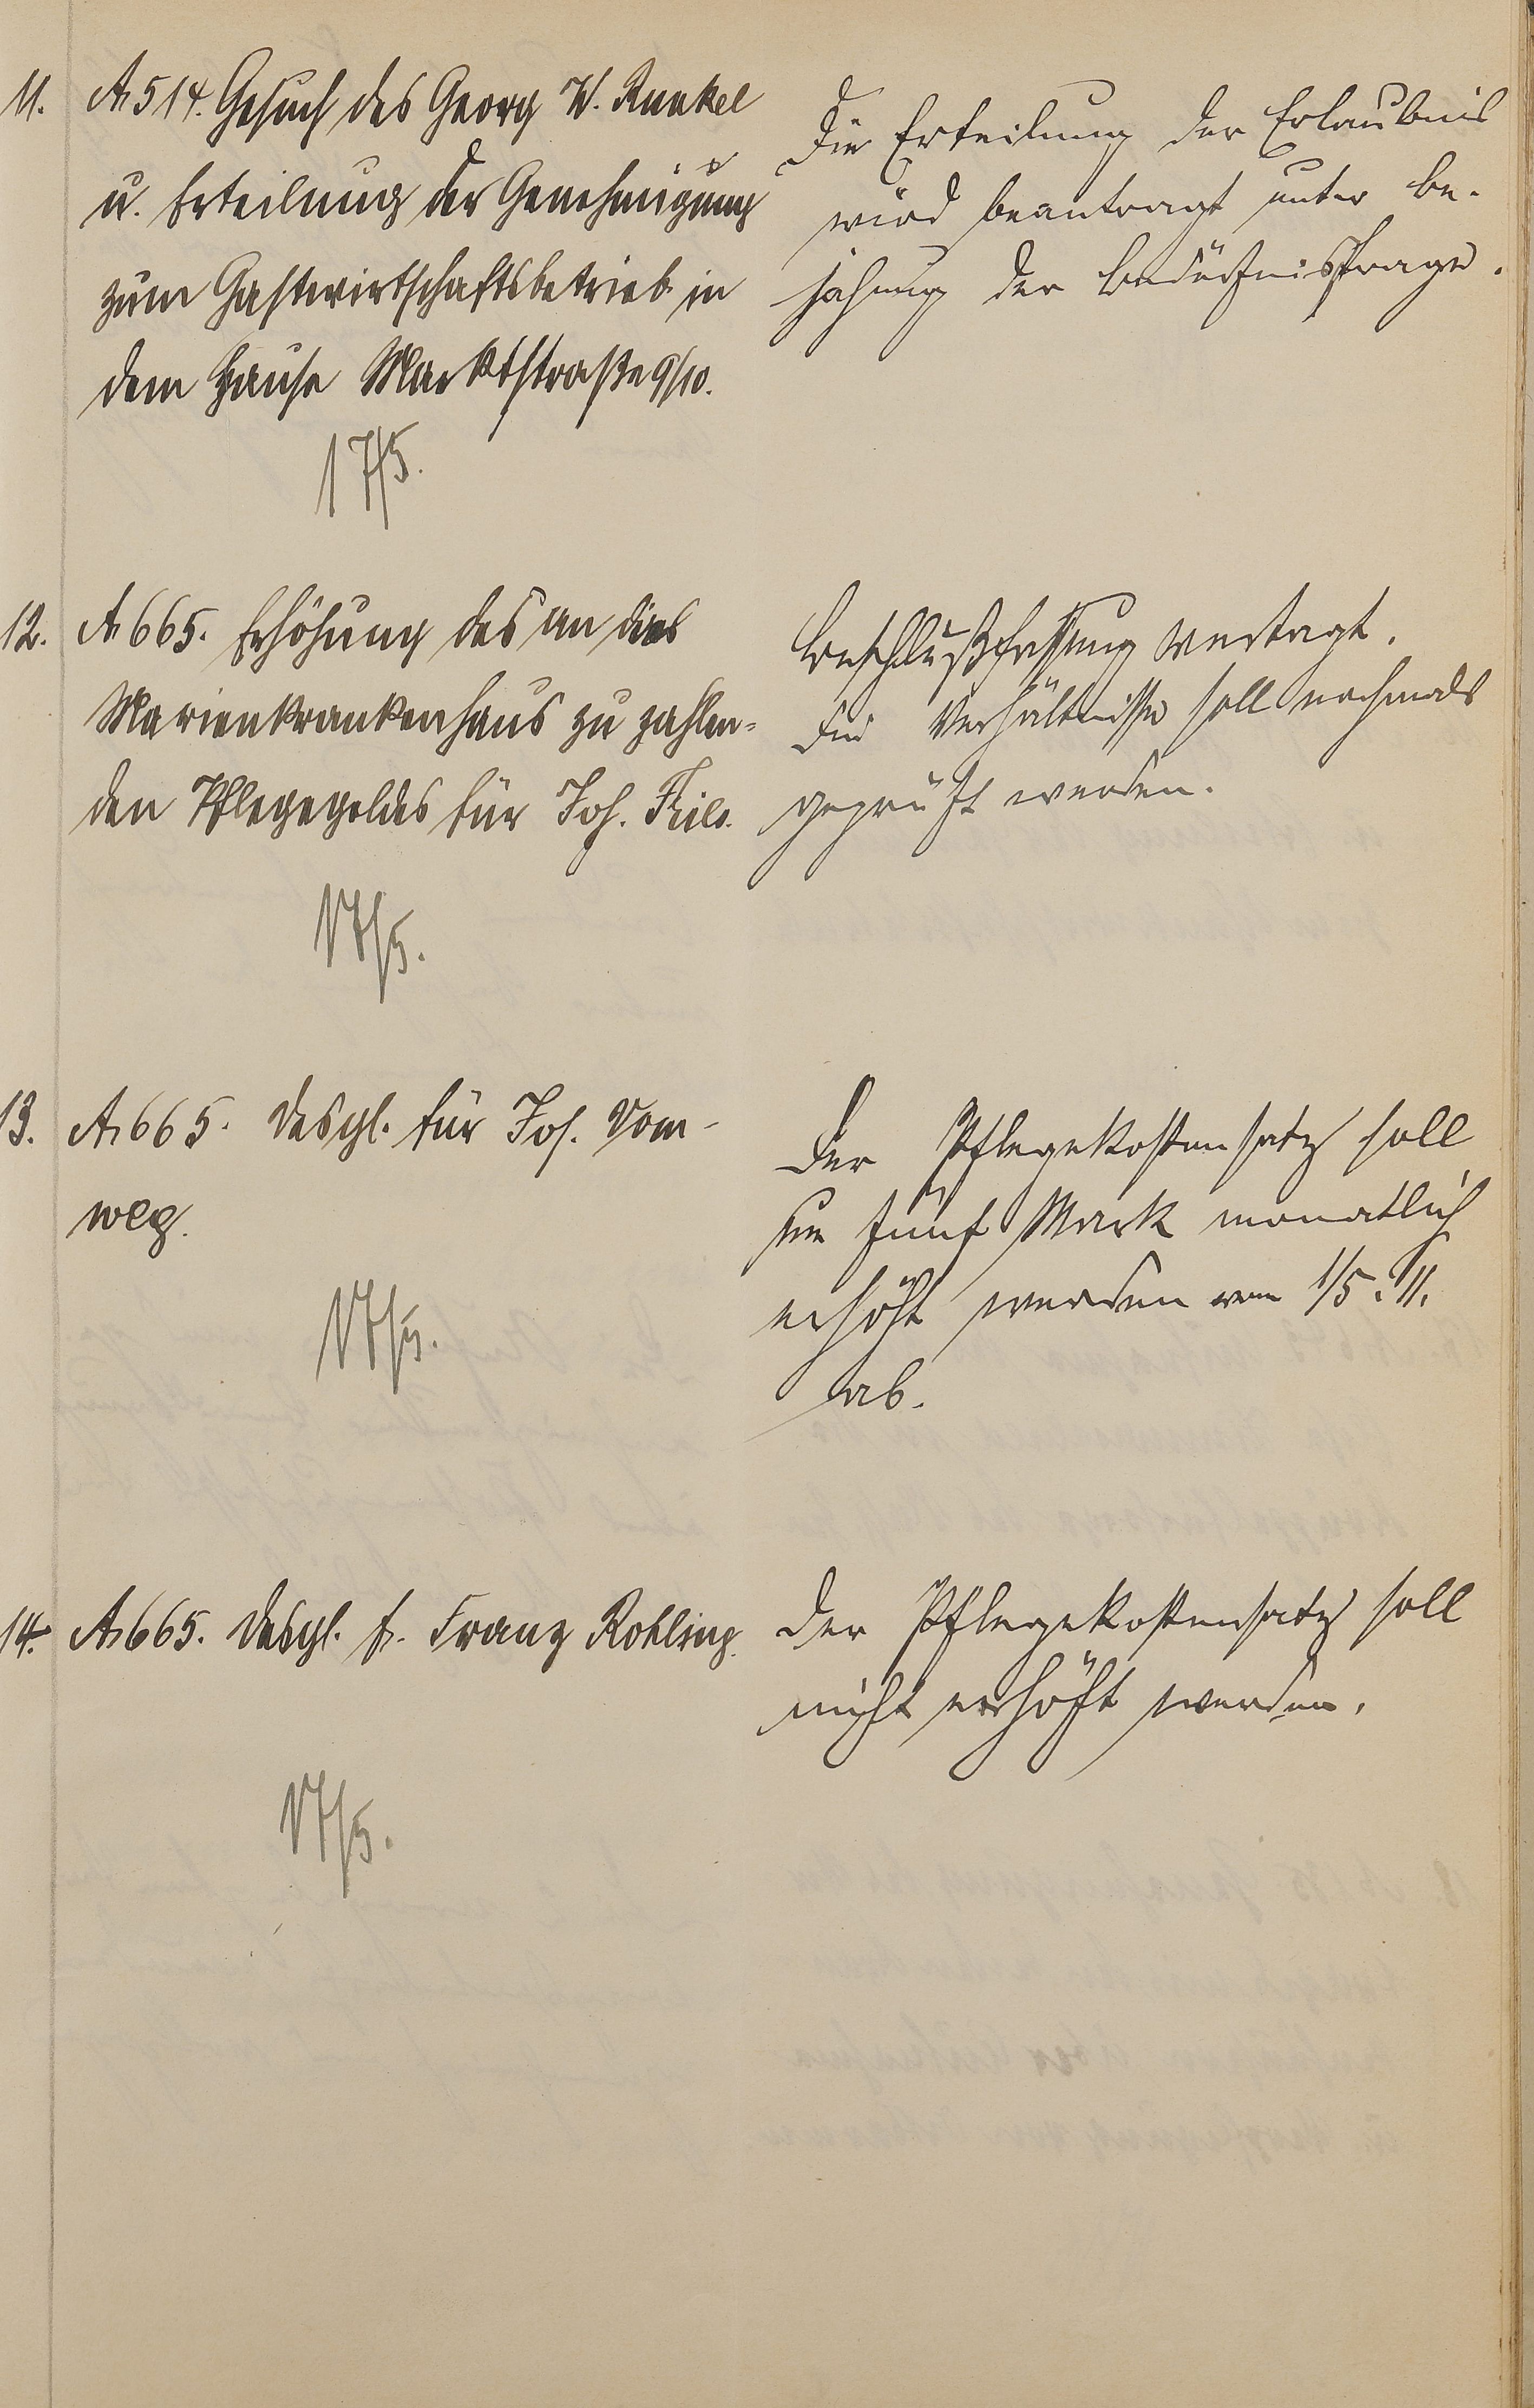 11. A 514. Gesuch des Georg W. Runkel
u. Erteilung der Genehmigung
zum Gastwirtschaftsbetrieb in
dem Hause Marktstraße 9/10.
17/5.
Die Erteilung der Erlaubnis
wird beantragt unter Be-
jahung der Bedürfnisfrage.
12. A 665. Erhöhung des an das
Marienkrankenhaus zu zahlen-
den Pflegegeldes für Joh.
17/5.
Beschlußfassung vertagt.
Die Verhältnisse soll nochmals
geprüft werden.
13. A 665. Desgl. für Jos. Vom-
weg.
17/5.
Der Pflegekostensatz soll
um fünf Mark monatlich
erhöht werden vom 1/5. 11.
ab.
14. A 665. Desgl. f. Franz Rohling.
17/5.
Der Pflegekostensatz soll
nicht erhöht werden.